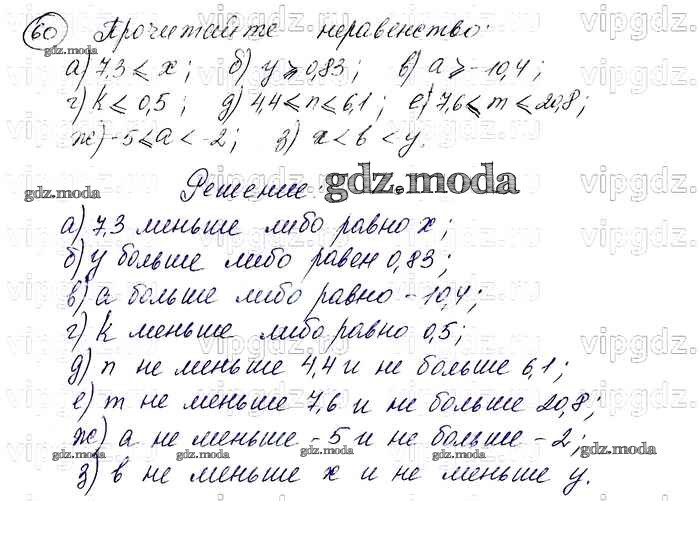 60 Прочитайте неравенство:
а) 7,3 ⩽ x; б) y ⩾ 0,83; в) a ⩾ -10,4;
г) k ⩽ 0,5; д) 4,4 ⩽ n ⩽ 6,1; е) 7,6 ⩽ m ⩽ 20,8;
ж) -5 ⩽ a < -2; з) x < b < y.
Решение:
gdz.moda
а) 7,3 меньше либо равно x;
б) y больше либо равен 0,83;
в) a больше либо равно -10,4;
г) k меньше либо равно 0,5;
д) n не меньше 4,4 и не больше 6,1;
е) m не меньше 7,6 и не больше 20,8;
ж) a не меньше -5 и не больше -2;
з) b не меньше x и не меньше y.